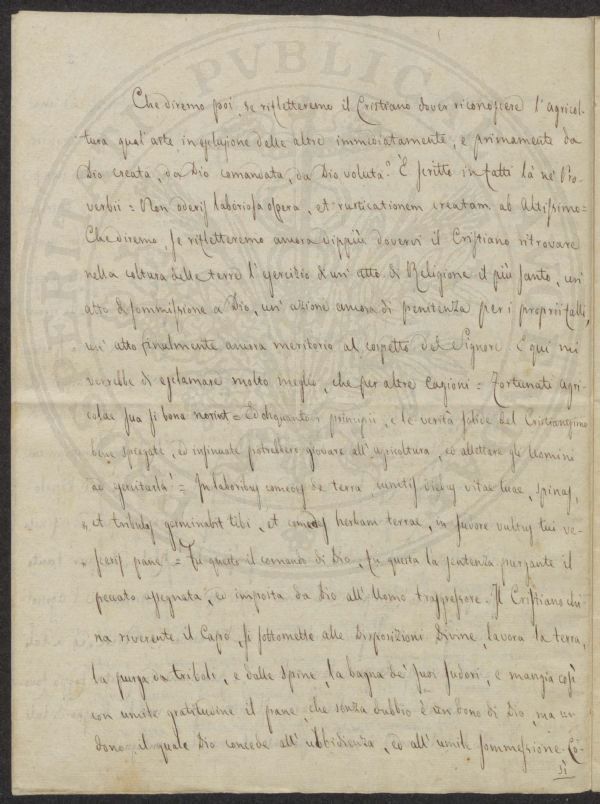 Che diremo poi, se rifletteremo il Cristiano dover riconoscere l'agricol-
tura qual'arte, in esclusione delle altre immediatamente, e primamente da
Dio creata, da Dio comandata, da Dio voluta? È scritto in fatti là ne' Pro-
verbii = Non oderis laboriosa opera, et rusticationem creatam ab Altissimo =
Che diremo, se rifletteremo ancora dippiù doversi il Cristiano ritrovare
nella coltura delle terre l'esercizio d'un' atto di Religione il più santo, un'
atto di sommissione a Dio, un' azione ancora di penitenza per i proprii falli,
un' atto finalmente ancora meritorio al cospetto del Signore. E qui mi
verrebbe di esclamare molto meglio, che per altre cagioni = Fortunati agri-
colae sua si bona norint = Ed oh quanto i principii, e le verità solide del Cristianesimo
bene spiegate, ed insinuate potrebbero giovare all'agricoltura, ed allettare gli Uomini
ad esercitarla! = In laboribus comedes de terra cunctis diebus vitae tuae, spinas,
et tribulos germinabit tibi, et comedes herbam terrae, in sudore vultus tui ve-
sceris pane = Fu questo il comando di Dio, fu questa la sentenza purgante il
peccato assegnata, ed imposta da Dio all'Uomo trasgressore. Il Cristiano chi-
na riverente il Capo, si sottomette alle Disposizioni Divine, lavora la terra,
la purga da' triboli, e dalle spine, la bagna de' suoi sudori, e mangia così
con umile gratitudine il pane, che senza dubbio è un dono di Dio, ma un
dono, il quale Dio concede all'ubbidienza, ed all'umile sommessione. Co-
sì